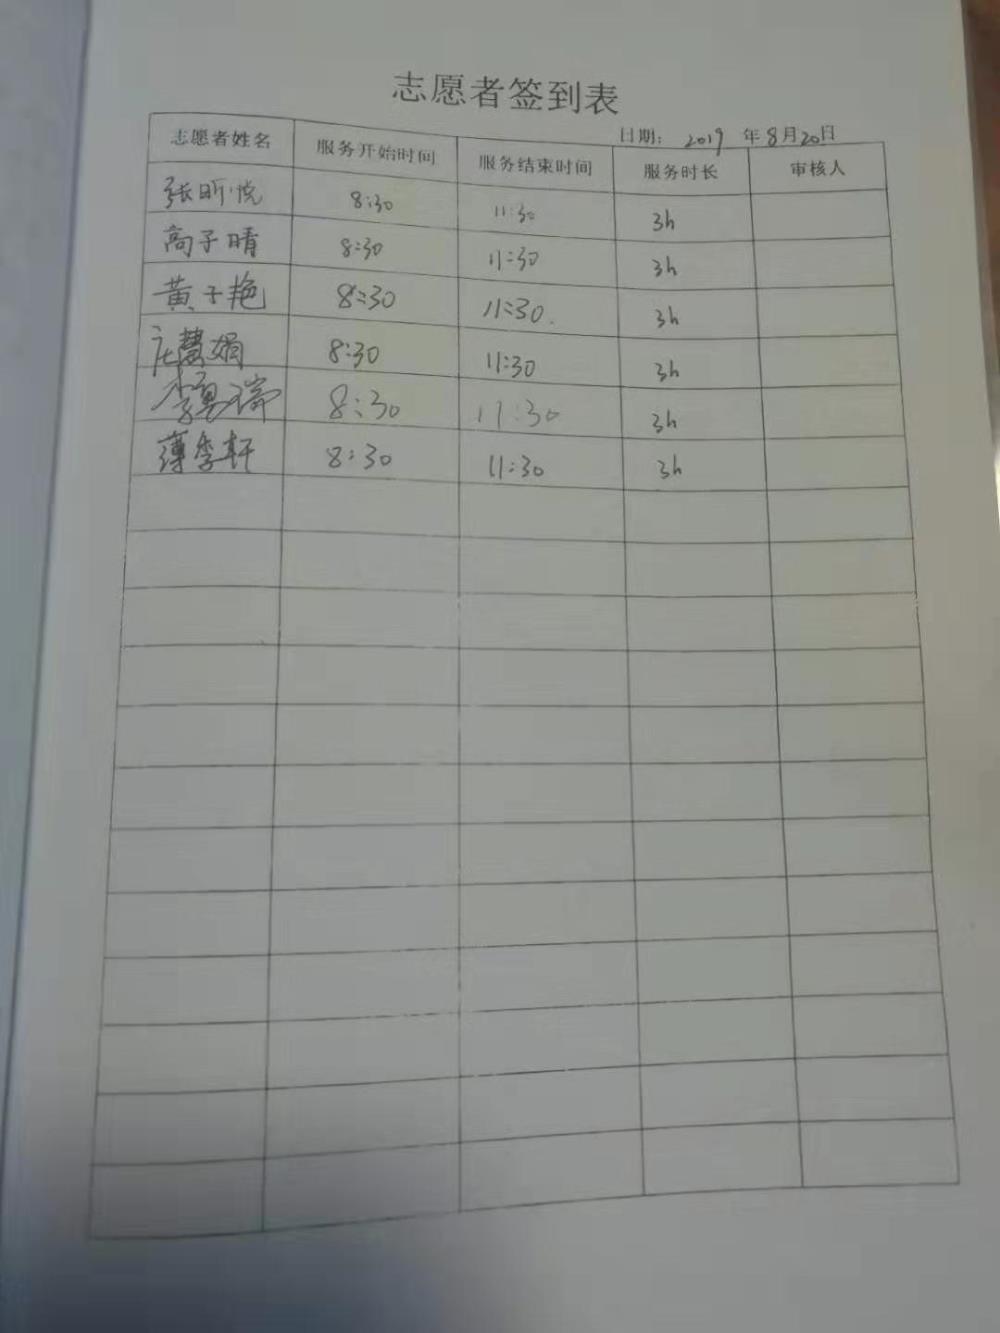 志愿者签到表
日期: 2019 年8月20日
志愿者姓名 服务开始时间 服务结束时间 服务时长 审核人
张昕悦 8:30 11:30 3h
高子晴 8:30 11:30 3h
黄子艳 8:30 11:30. 3h
庄慧娟 8:30 11:30 3h
8:30 11:30 3h
薄季轩 8:30 11:30 3h